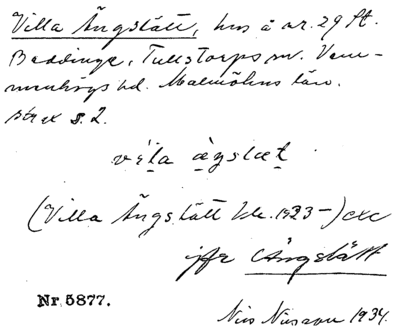 Villa Ängslätt, hus å nr. 29 St.
Beddinge, Tullstorps sn. Vemmenhögs hd. Malmöhus län.
s. 2.
(Villa Ängslätt 1923–) exc
jfr Ängslätt
Nr. 5877.
Nils Nilsson 1934.